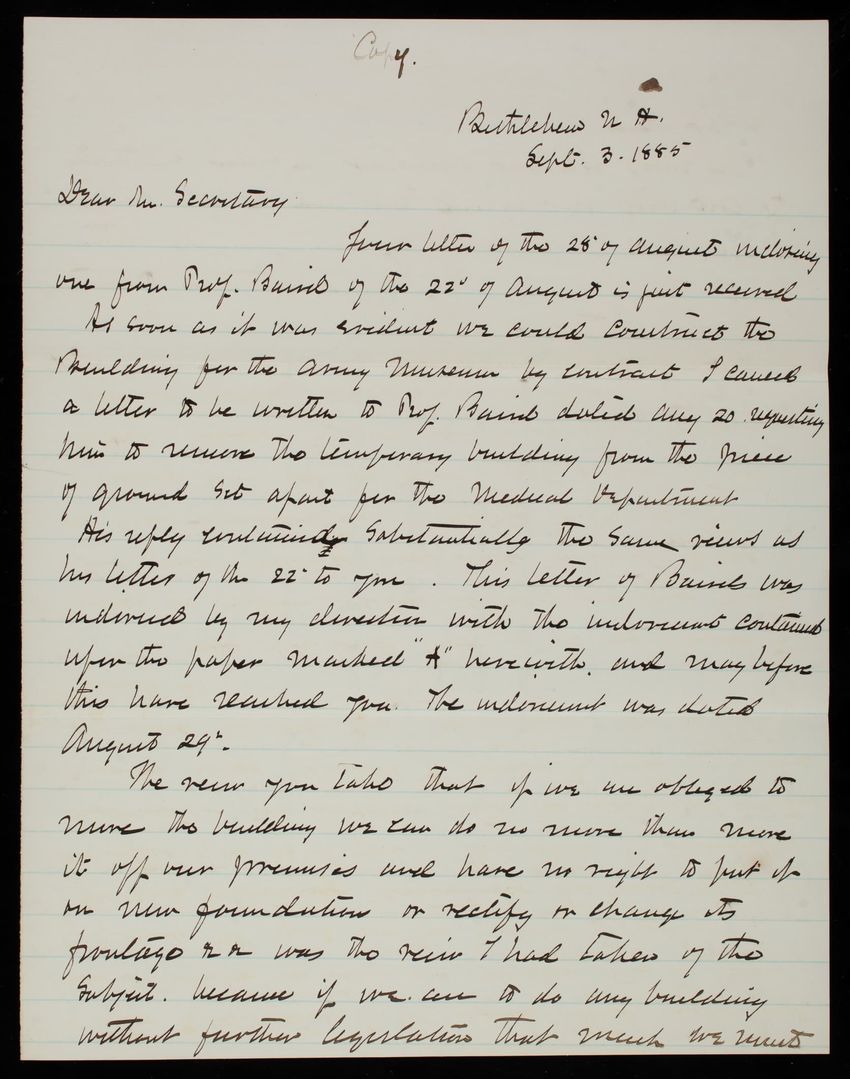 Copy.
Bethlehem N H.
Sept. 3. 1885
Dear Mr. Secretary
Your letter of the 28" of August inclosing
one from Prof. Baird of the 22d of August is just received
As soon as it was evident we could construct the
Building for the Army Museum by contract I caused
a letter to be written to Prof. Baird dated Aug 20. requesting
him to remove the temporary building from the piece
of ground set apart for the Medical Department
His reply contained substantially the same views as
his letter of the 22d to you. This letter of Bairds was
indorsed by my direction with the indorsement contained
upon the paper marked "A" herewith. and may before
this have reached you. The indorsement was dated
August 29".
The view you take that if we are obliged to
move the building we can do no more than move
it off our premises and have no right to put it
on new foundations or rectify or change its
frontage &c was the view I had taken of the
Subject. because if we are to do any building
without further legislation that much we must